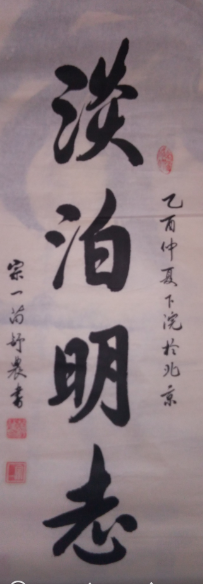 淡泊明志
乙酉仲夏下浣於北京
宗一芮好农书